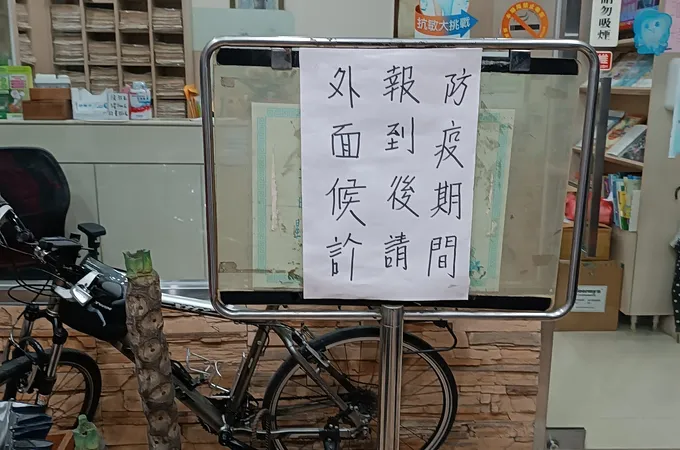 防疫期間
報到後請
外面候診
抗敏大挑戰
請勿吸煙